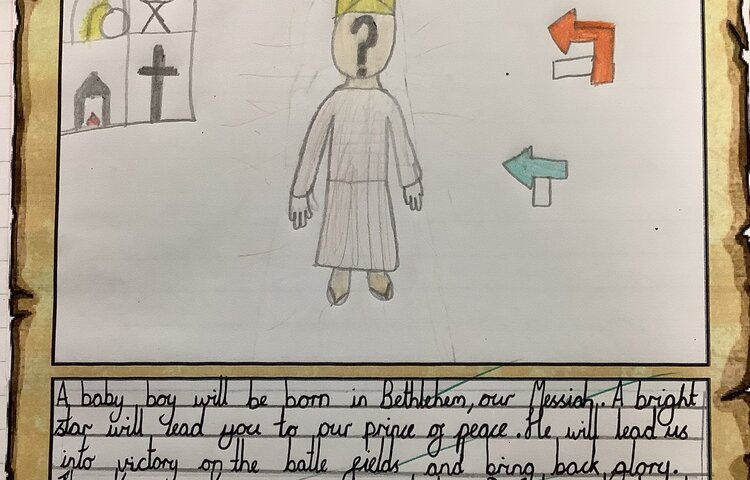 ?
A baby boy will be born in Bethlehem, our Messiah. A bright
star will lead you to our prince of peace. He will lead us
into victory on the batle fields and bring back glory.